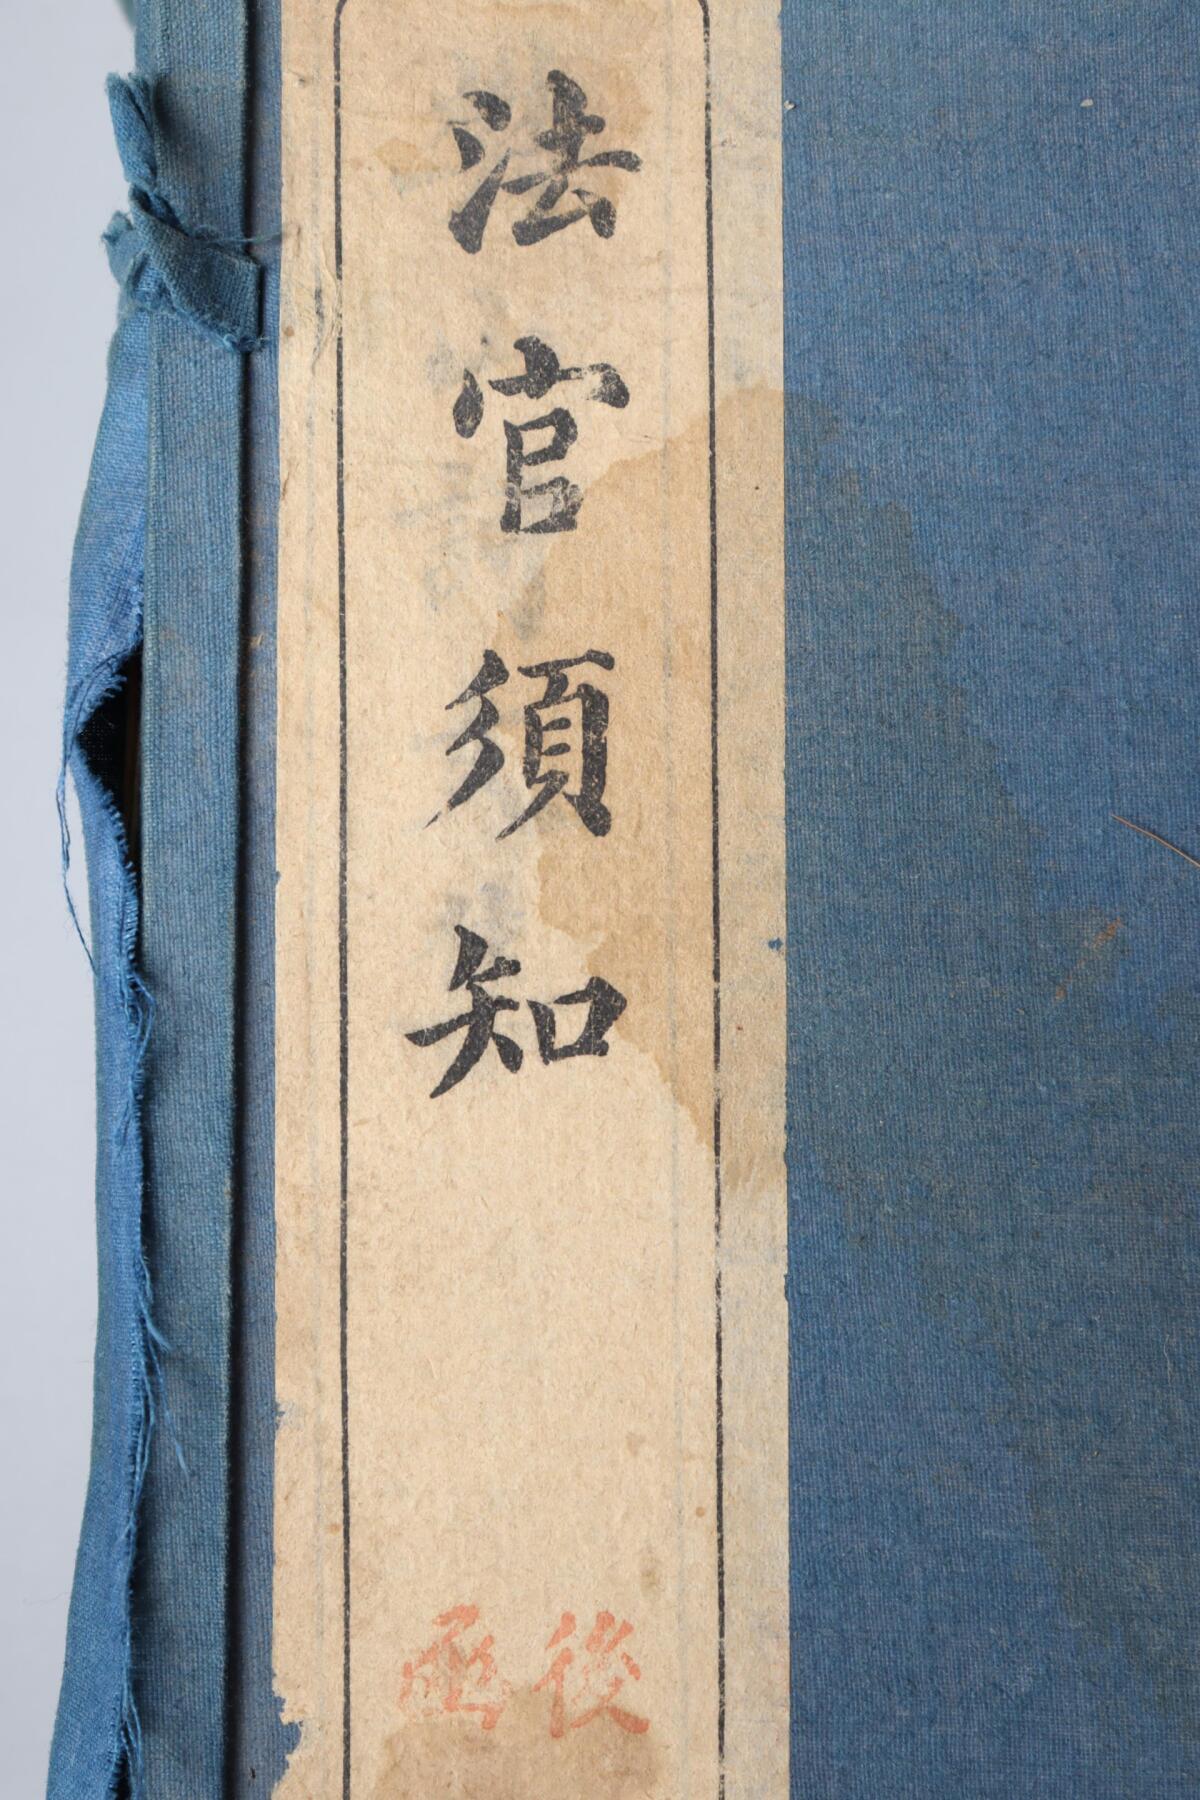 法官須知
後函